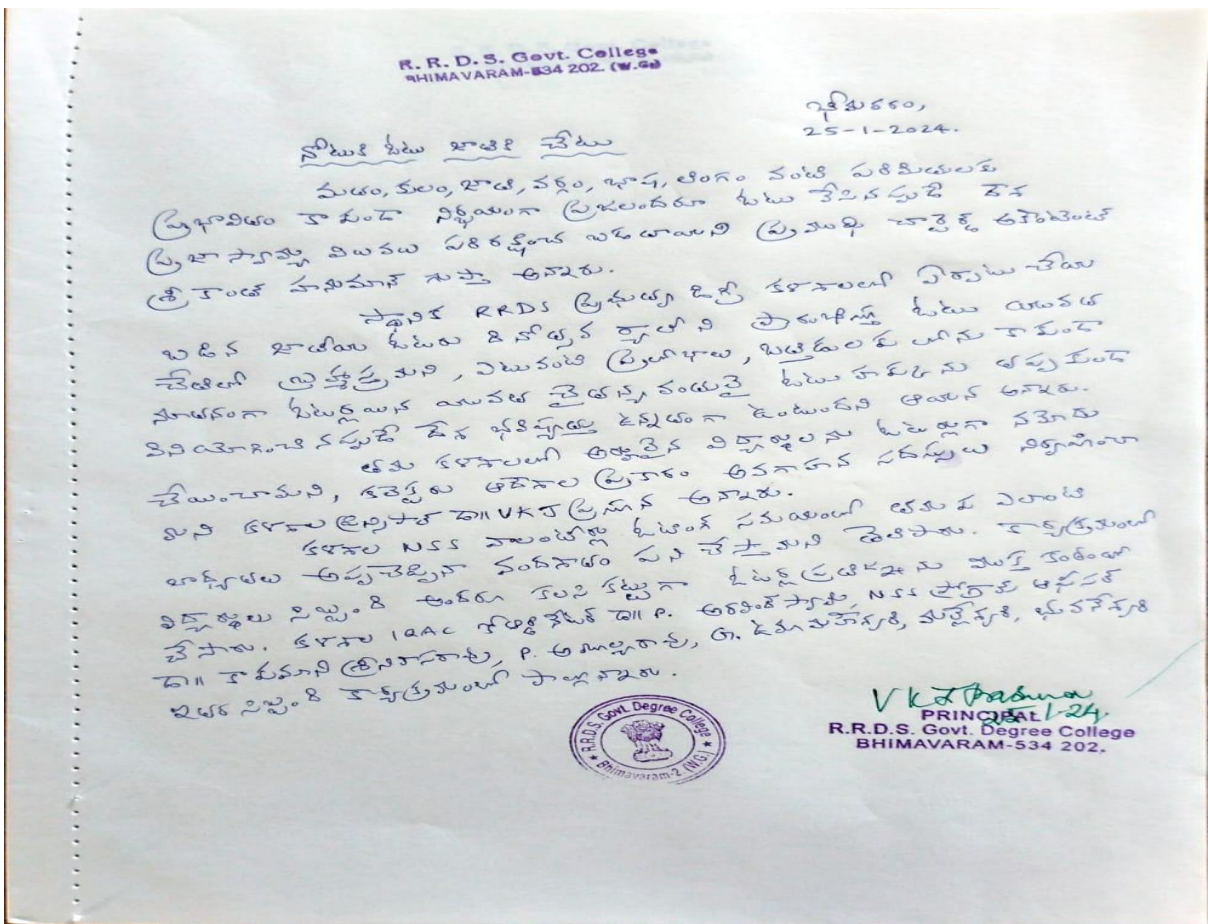 R. R. D. S. Govt. College
BHIMAVARAM-534 202. (W.G)
భీమవరం,
25-1-2024.
నోటుకి ఓటు జాతికి చేటు
మతం, కులం, జాతి, వర్గం, భాష, లింగం వంటి పరిమితులకు
ప్రభావితం కాకుండా నిర్భయంగా ప్రజలందరూ ఓటు వేసినప్పుడే దేశ
ప్రజాస్వామ్య విలువలు పరిరక్షించ బడతాయని ప్రముఖ చార్టెర్డ్ అకౌంటెంట్
శ్రీ కాంత్ హనుమాన్ గుప్తా అన్నారు.
స్థానిక RRDS ప్రభుత్వ డిగ్రీ కళాశాలలో ఏర్పాటు చేయ
బడిన జాతీయ ఓటరు దినోత్సవ ర్యాలీ ని ప్రారంభిస్తూ ఓటు యువత
చేతిలో బ్రహ్మాస్త్రమని, ఎటువంటి ప్రలోభాలు, ఒత్తిడులకు లోను కాకుండా
నూతనంగా ఓటర్లయిన యువత చైతన్య వంతులై ఓటు హక్కు ను తప్పకుండా
వినియోగించినప్పుడే దేశ భవిష్యత్తు ఉన్నతంగా ఉంటుందని ఆయన అన్నారు.
తమ కళాశాలలో అర్హులైన విద్యార్థులను ఓటర్లుగా నమోదు
చేయించామని, కలెక్టరు ఆదేశాల ప్రకారం అవగాహన సదస్సులు నిర్వహించా
మని కళాశాల ప్రిన్సిపాల్ డా॥ VKJ ప్రసూన అన్నారు.
కళాశాల NSS వాలంటీర్లు ఓటింగ్ సమయంలో తమకు ఎలాంటి
బాధ్యతలు అప్పచెప్పినా వందశాతం పని చేస్తామని తెలిపారు. కార్యక్రమంలో
విద్యార్థులు సిబ్బంది అందరూ కలసి కట్టుగా ఓటర్ల ప్రతిజ్ఞ ను ముక్త కంఠంతో
చేసారు. కళాశాల IQAC కోఆర్డినేటర్ డా॥ P. అరవింద్ స్వామి, NSS ప్రోగ్రామ్ ఆఫీసర్
డా॥ శ్రీనివాసరావు, P. అమూల్యరావు, ఉమామహేశ్వరి, మల్లేశ్వరి, భువనేశ్వరి
ఇతర సిబ్బంది కార్యక్రమంలో పాల్గొన్నారు.
R.R.D.S. Govt. Degree College
Bhimavaram-2. (W.G.)
V K J Prasuna
25-1-24
PRINCIPAL
R.R.D.S. Govt. Degree College
BHIMAVARAM-534 202.